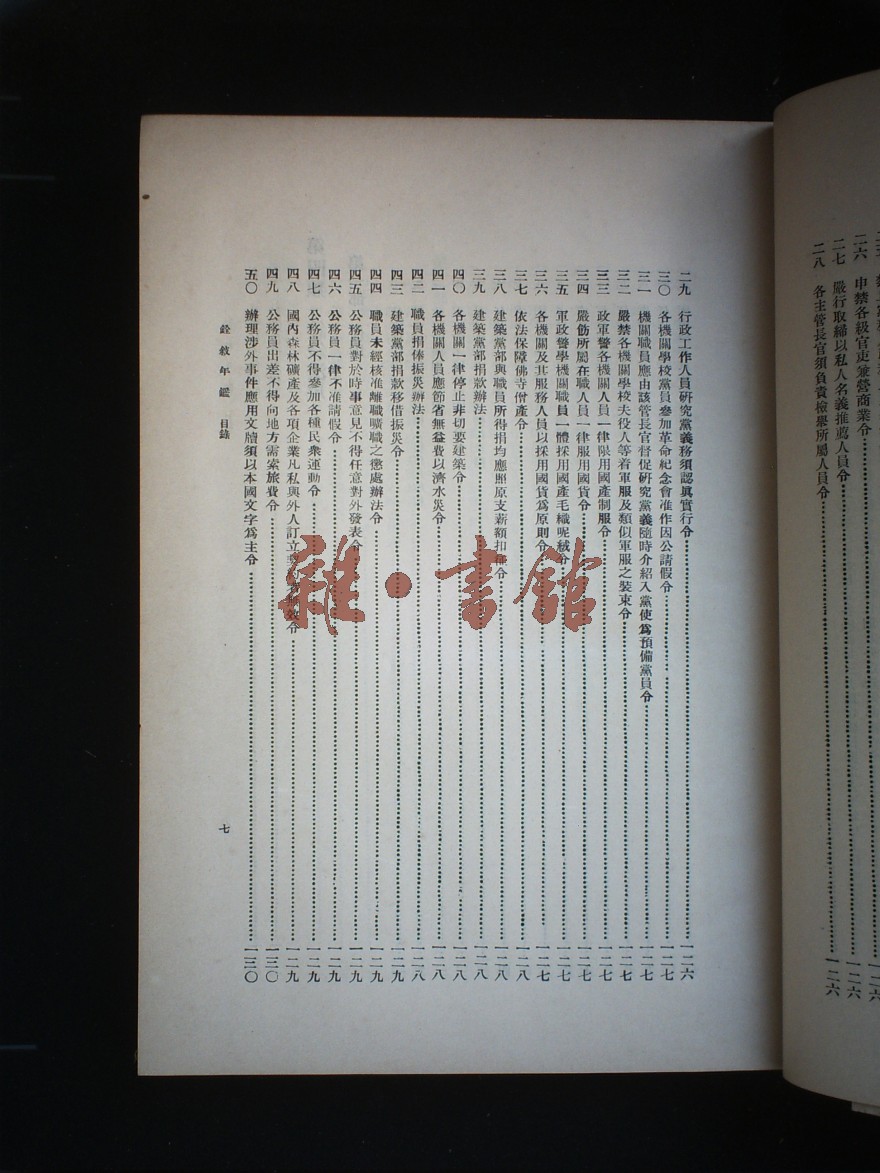 二六　申禁各級官吏兼營商業令
一二六
二七　嚴行取締以私人名義推薦人員令
一二六
二八　各主管長官須負責檢舉所屬人員令
一二六
二九　行政工作人員研究黨義務須認眞實行令
一二六
三〇　各機關學校黨員參加革命紀念會准作因公請假令
一二七
三一　機關職員應由該管長官督促研究黨義隨時介紹入黨使爲預備黨員令
一二七
三二　嚴禁各機關學校夫役人等着軍服及類似軍服之裝束令
一二七
三三　政軍警各機關人員一律限用國產制服令
一二七
三四　嚴飭所屬在職人員一律服用國貨令
一二七
三五　軍政警學機關職員一體採用國產毛織呢絨令
一二七
三六　各機關及其服務人員以採用國貨爲原則令
一二七
三七　依法保障佛寺僧產令
一二八
三八　建築黨部與職員所得捐均應照原支薪額扣令
一二八
三九　建築黨部捐款辦法
一二八
四〇　各機關一律停止非切要建築令
一二八
四一　各機關人員應節省無益費以濟水災令
一二八
四二　職員捐俸振災辦法
一二八
四三　建築黨部捐款移借振災令
一二九
四四　職員未經核准離職曠職之懲處辦法令
一二九
四五　公務員對於時事意見不得任意對外發表令
一二九
四六　公務員一律不准請假令
一二九
四七　公務員不得參加各種民衆運動令
一二九
四八　國內森林礦產及各項企業凡私與外人訂立契約無效令
一二九
四九　公務員出差不得向地方需索旅費令
一三〇
五〇　辦理涉外事件應用文牘須以本國文字爲主令
一三〇
銓敘年鑑　目錄
七
雜·書館